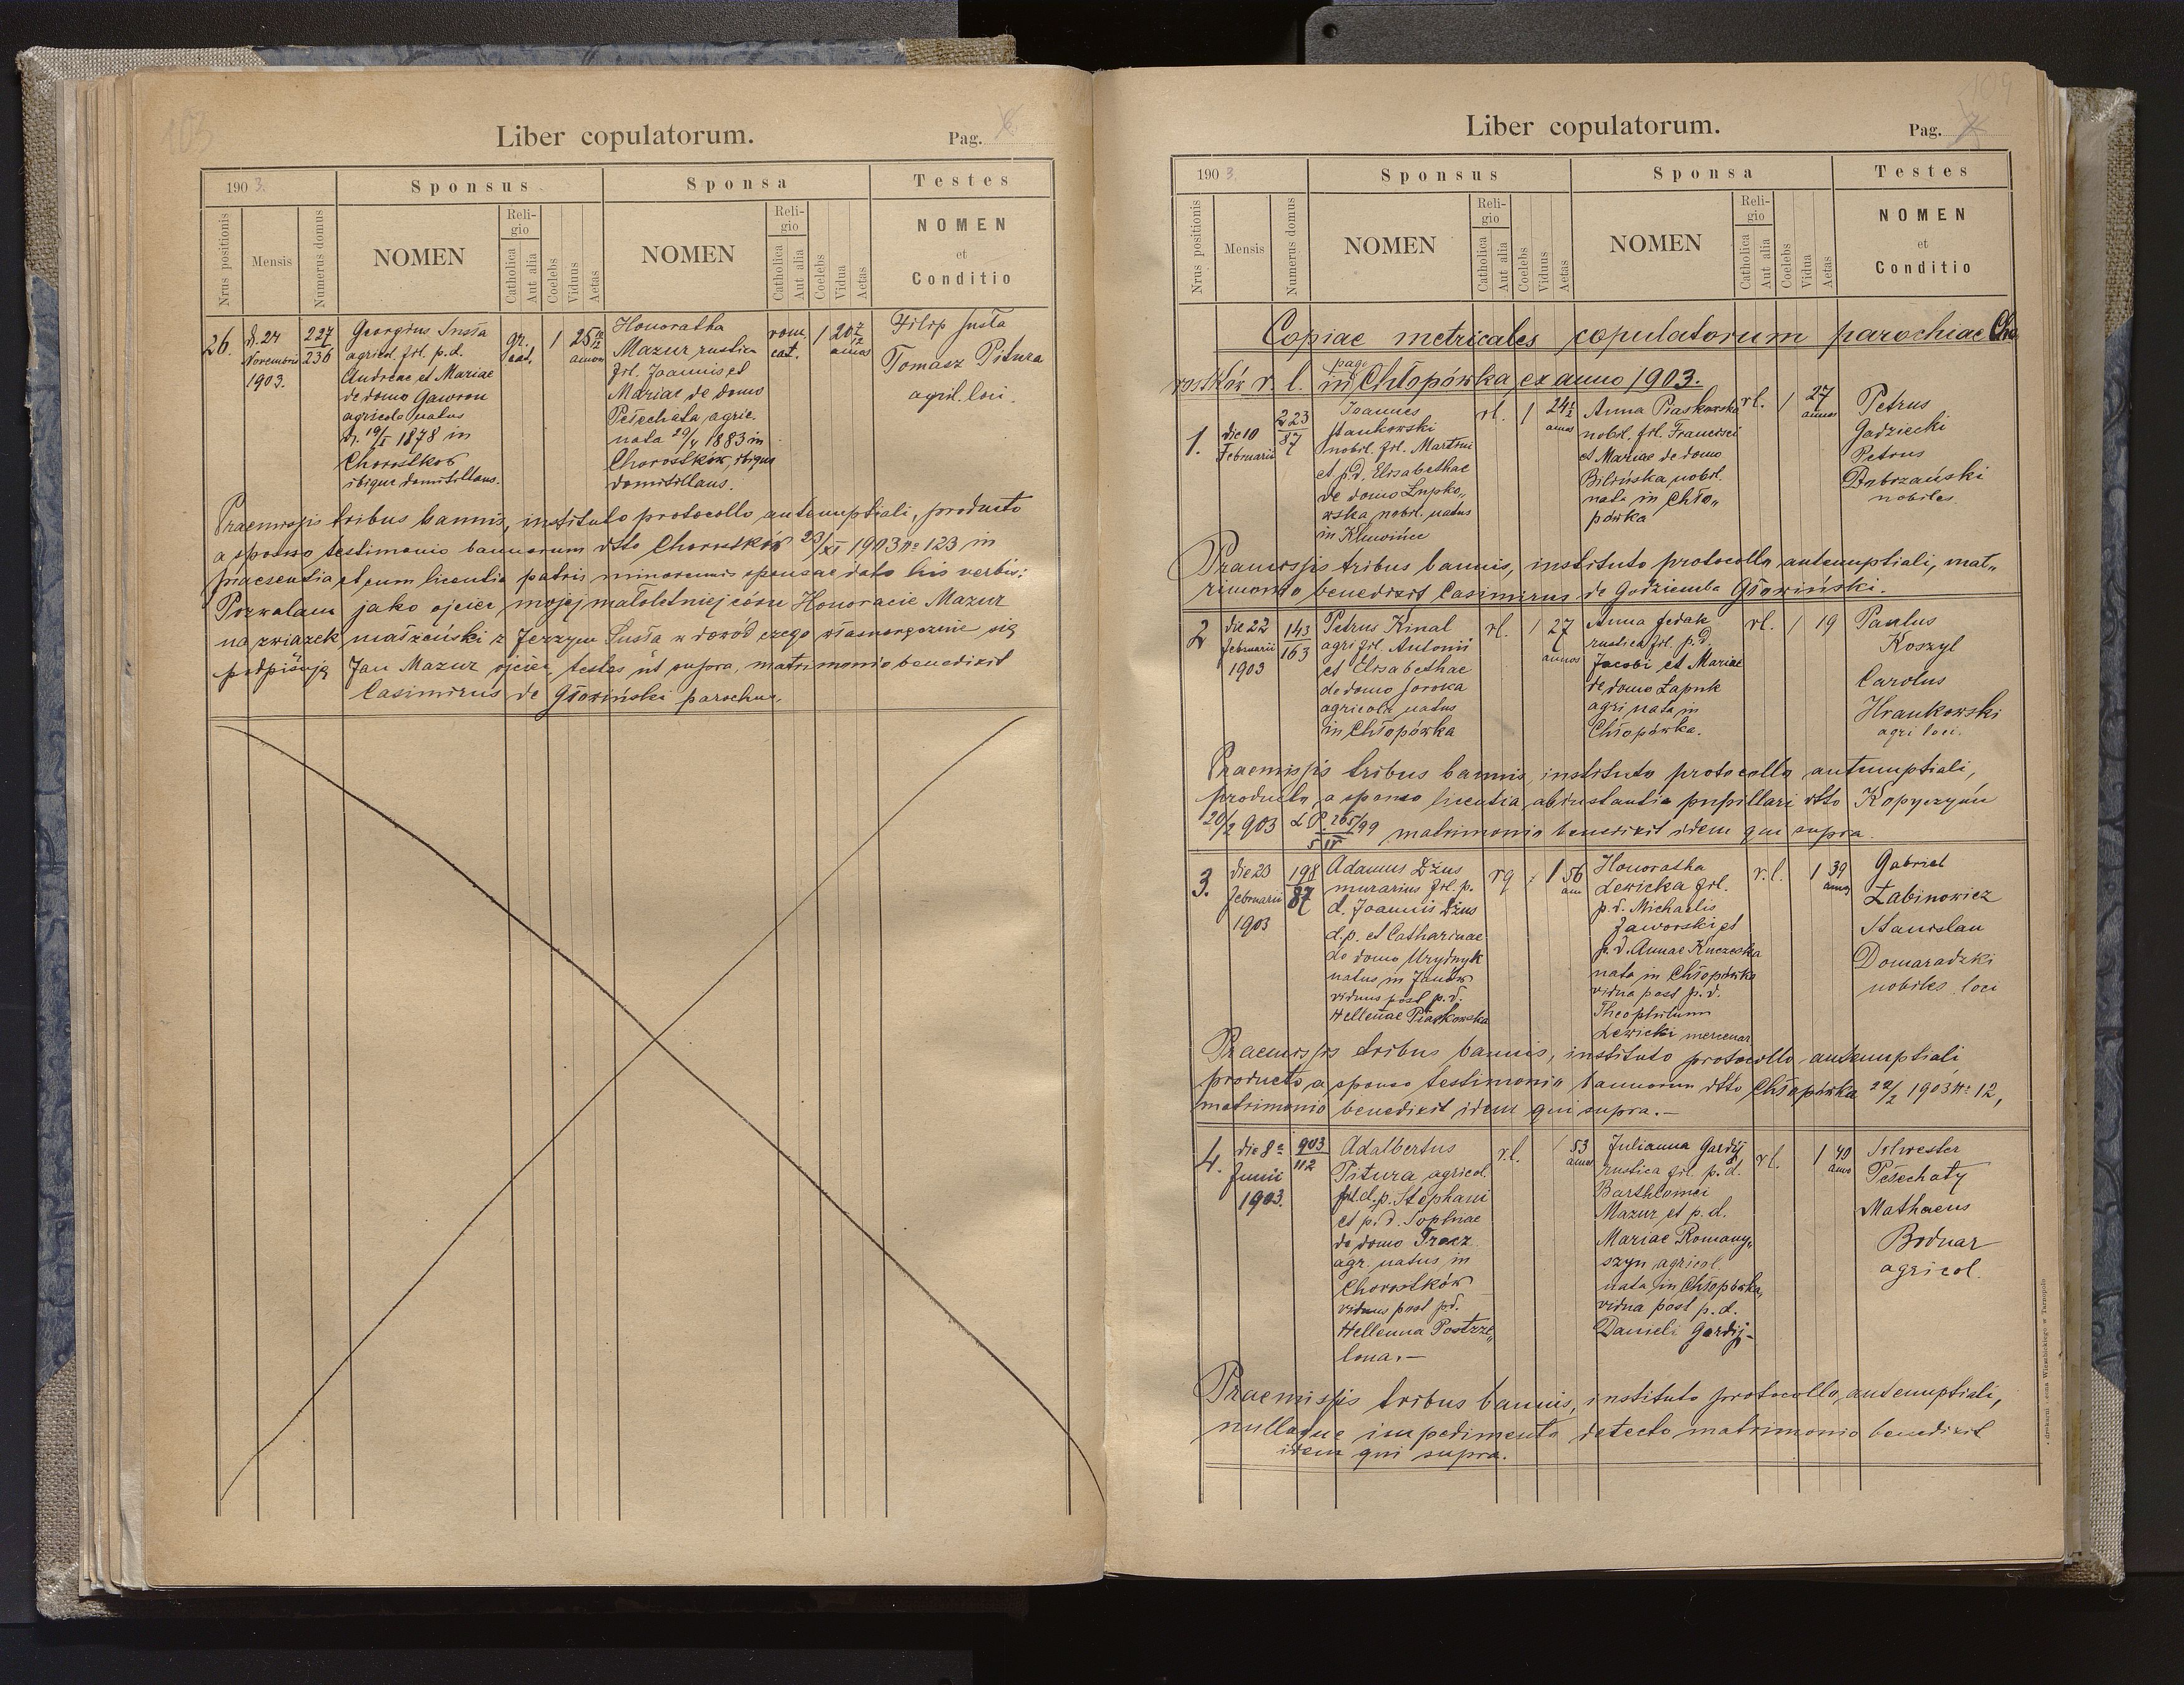 103
Liber copulatorum.
Pag.
1903.
Sponsus
Sponsa
Testes
Nrus positionis
Mensis
Numerus domus
NOMEN
Religio
Catholica
Aut alia
Coelebs
Viduus
Aetas
NOMEN
Religio
Catholica
Aut alia
Coelebs
Vidua
Aetas
NOMEN
et
Conditio
26.
d. 24
Novembris
1903.
227
236
Georgius Susła
agricol. fil. p.d.
Andreae et Mariae
de domo Gawron
agricola natus
d. 19/I 1878 in
Chorostków
ibique domicilians.
gr.
cat.
1
25 10/12
annor
Honoratha
Mazur rustica
fil. Joannis et
Mariae de domo
Pesechata, agric.
nata 29/4 1883 in
Chorostków, ibique
domicilians.
rom.
cat.
1
20 7/12
annos
Filip Susła
Tomasz Pitura
agric. loci.
Praemissis tribus bannis, instituto protocollo antenuptiali, producto
a sponso testimonio bannorum dtto Chorostków 23/XI 1903 No 123 in
praesentia et cum licentia patris minorennis sponsae dato his verbis:
Pozwalam jako ojciec mojej małoletniej córce Honoracie Mazur
na związek małżeński z Jerzym Susła w dowód czego własnoręcznie się
podpisuję Jan Mazur ojciec, testes ut supra, matrimonio benedixit
Casimirus de Głowiński parochus.
109
Liber copulatorum.
Pag.
1903.
Sponsus
Sponsa
Testes
Nrus positionis
Mensis
Numerus domus
NOMEN
Religio
Catholica
Aut alia
Coelebs
Viduus
Aetas
NOMEN
Religio
Catholica
Aut alia
Coelebs
Vidua
Aetas
NOMEN
et
Conditio
Copiae metricales copulatorum parochiae Cho
rostków r. l. in pag. Chłopówka, ex anno 1903.
1.
die 10
Februarii
223
87
Joannes
Stankowski
nobil. fil. Martini
et p.d. Elisabethae
de domo Łupko„
wska nobil. natus
in Kluwińce
rl.
1
24 1/2
annos
Anna Piaskowska
nobil. fil. Francisci
et Mariae de domo
Bilińska nobil.
nata in Chło„
pówka
rl.
1
27
annos
Petrus
Gadziecki
Petrus
Dobrzański
nobiles.
Praemissis tribus bannis, instituto protocollo antenuptiali, mat„
rimonio benedixit Casimirus de Godziemba Głowiński.
2
die 22
Februarii
1903
143
163
Petrus Kinal
agri fil. Antonii
et Elisabethae
de domo Soroka
agricola natus
in Chłopówka
rl.
1
27
annos
Anna Jedak
rustica fil. p.d.
Jacobi et Mariae
de domo Łapuk
agri nata in
Chłopówka.
rl.
1
19
Paulus
Koszyl
Carolus
Hrankowski
agri loci.
Praemissis tribus bannis, instituto protocollo antenuptiali,
producta a sponso licentia ab instantia pupillari dtto Kopyczyńce
20/2 903 L P. 265/99 matrimonio benedixit idem qui supra.
5 IV
3.
die 23
Februarii
1903
198
87
Adamus Dżus
murarius fil. p.
d. Joannis Dżus
d.p. et Catharinae
de domo Urydnyk
natus in Janów
viduus post p.d.
Hellenae Piaskowska
rg
1
56
ann
Honoratha
Lewicka fil.
p.d. Michaelis
Jaworski et
p.d. Annae Kuczeska
nata in Chłopówka
vidua post p.d.
Theophilum
Lewicki mercenar
r.l.
1
39
annos
Gabriel
Łabinowicz
Stanislau
Domaradzki
nobiles loci
Praemissis tribus bannis, instituto protocollo antenuptiali
producto a sponso testimonio bannorum dtto Chłopówka 22/2 1903 No 12,
matrimonio benedixit idem qui supra.—
4.
die 8a
Junii
1903.
903
112
Adalbertus
Pitura agricol.
fil. d.p. Stephani
et p.d. Sophiae
de domo Tracz
agr. natus in
Chorostków
viduus post p.d.
Hellenna Postrze„
lona.—
r.l.
1
53
annos
Julianna Gardij
rustica fil. p.d.
Barthlomei
Mazur et p.d.
Mariae Romany„
szyn agricol.
nata in Chłopówka,
vidua post p.d.
Danieli Gardij—
rl.
1
40
anno
Silwester
Pesechaty
Mathaeus
Bodnar
agricol.
Praemissis tribus bannis, instituto protocollo antenuptiali,
nulloque impedimento detecto matrimonio benedixit
idem qui supra.